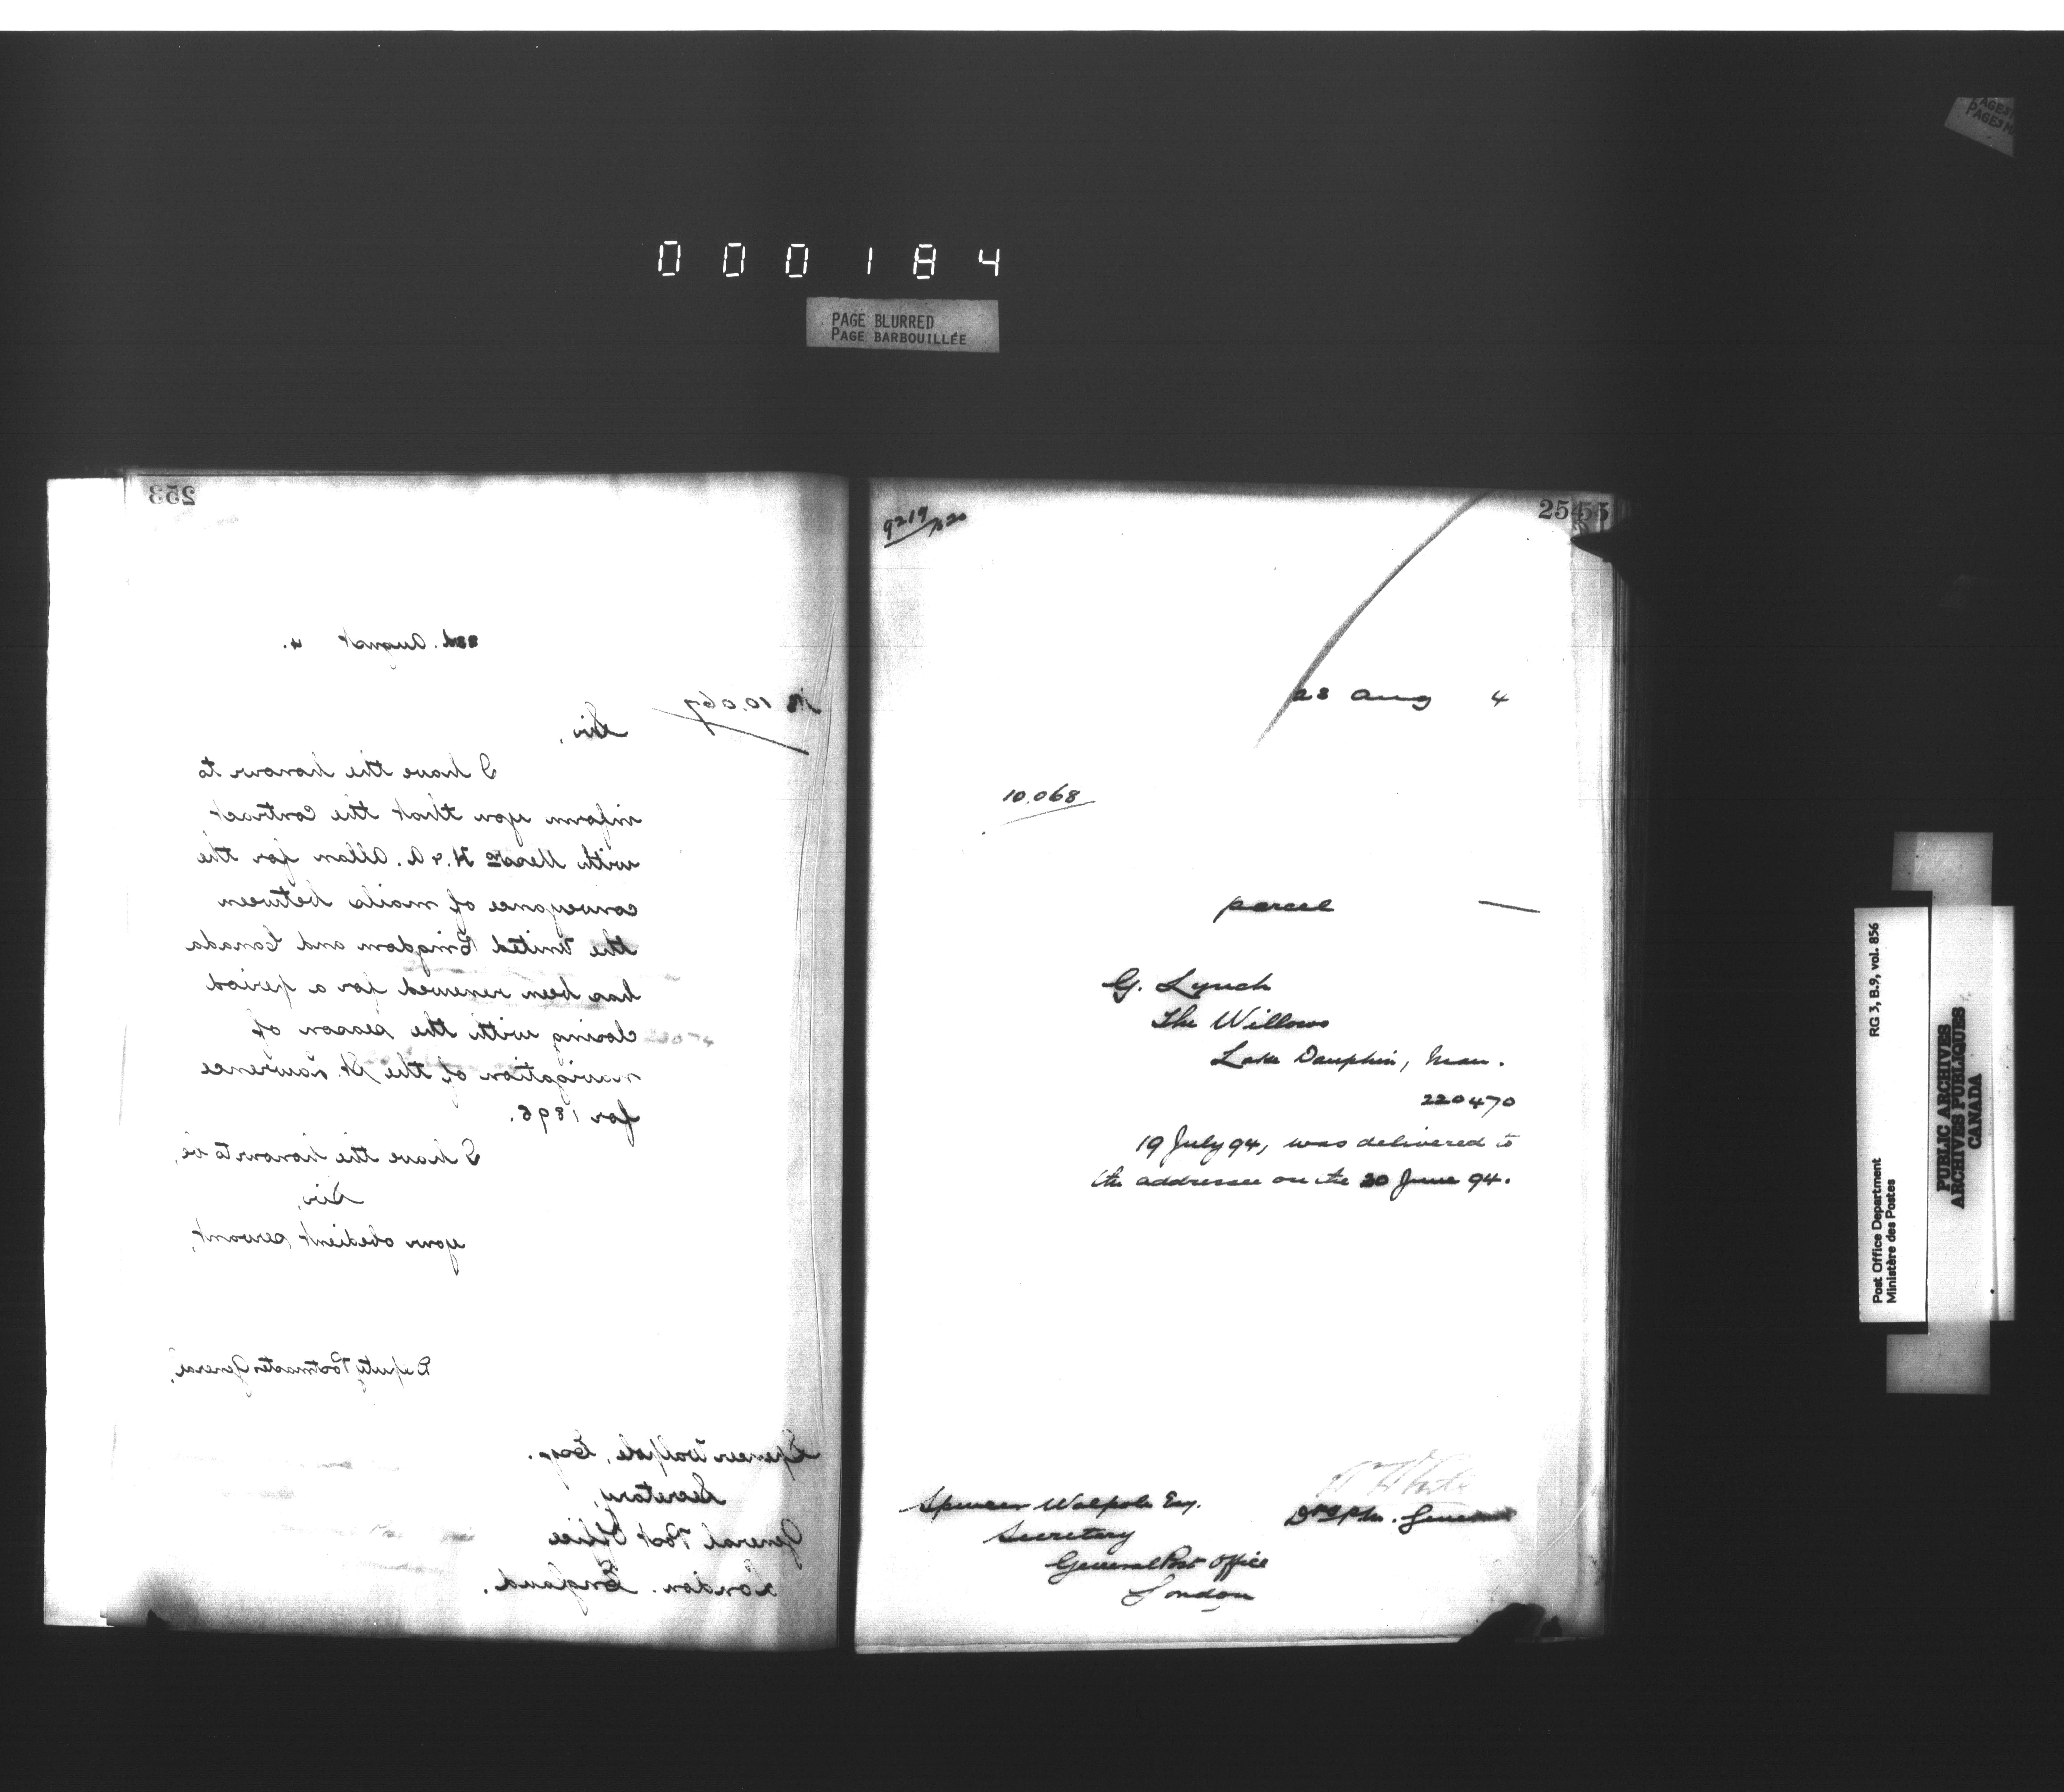 000184
PAGE BLURRED
PAGE BARBOUILLÉE
253
23rd. August 4.
No 10.067
Sir,
I have the honour to
inform you that the contract
with Messrs H. & A. Allan for the
conveyance of mails between
the United Kingdom and Canada
has been renewed for a period
closing with the season of
navigation of the St. Lawrence
for 1895.
I have the honour to be,
Sir,
your obedient servant,
Deputy Postmaster General.
Spencer Walpole, Esq.
Secretary,
General Post Office
London. England.
9219/B20
254
55
23 Aug 4
10.068
parcel —
G. Lynch
The Willows
Lake Dauphin, Man.
220470
19 July 94, was delivered to
the addressee on the 30 June 94.
Spencer Walpole Esq.
Secretary
General Post Office
London
W White
General
RG 3, B.9, vol. 856
Post Office Department
Ministère des Postes
PUBLIC ARCHIVES
ARCHIVES PUBLIQUES
CANADA